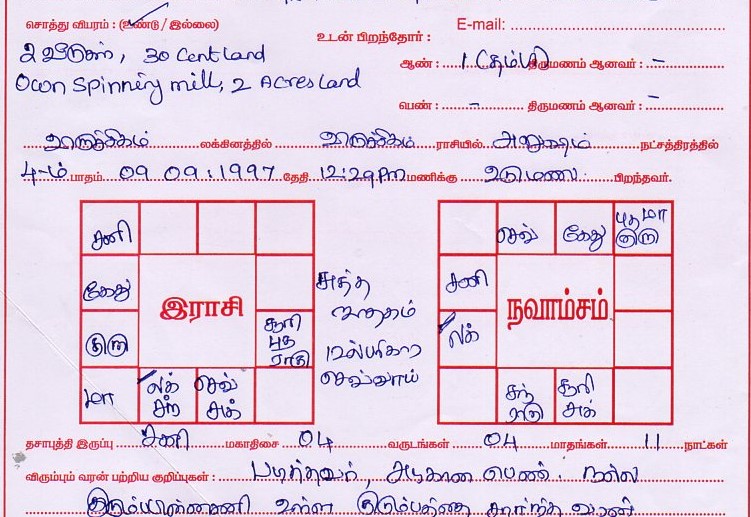 சொத்து விபரம் : (உண்டு / இல்லை)
E-mail:
உடன் பிறந்தோர் :
2 வீடுகள், 30 Cent Land
ஆண் : 1 (தம்பி) திருமணம் ஆனவர் : –
Own Spinning mill, 2 Acres Land
பெண் : – திருமணம் ஆனவர் : –
விருச்சிகம் லக்கினத்தில் விருச்சிகம் ராசியில் அனுஷம் நட்சத்திரத்தில்
4-ம் பாதம் 09 09 : 1997 தேதி 12:29 Pm மணிக்கு உடுமலை பிறந்தவர்.
சனி
கேது
குரு
மா
லக்
சந்
செவ்
சுக்
சூரி
புத
ராகு
இராசி
சுத்த
ஜாதகம்
பரிகார
செவ்வாய்
செவ்
கேது
புத மா
குரு
சனி
லக்
சந்
ராகு
சூரி
சுக்
நவாம்சம்
தசாபுத்தி இருப்பு சனி மகாதிசை 04 வருடங்கள் 04 மாதங்கள் 11 நாட்கள்
விரும்பும் வரன் பற்றிய குறிப்புகள் : படித்தவர், அழகான பெண். நல்ல
குடும்பப்பின்னணி உள்ள குடும்பத்தை சார்ந்த வரன்